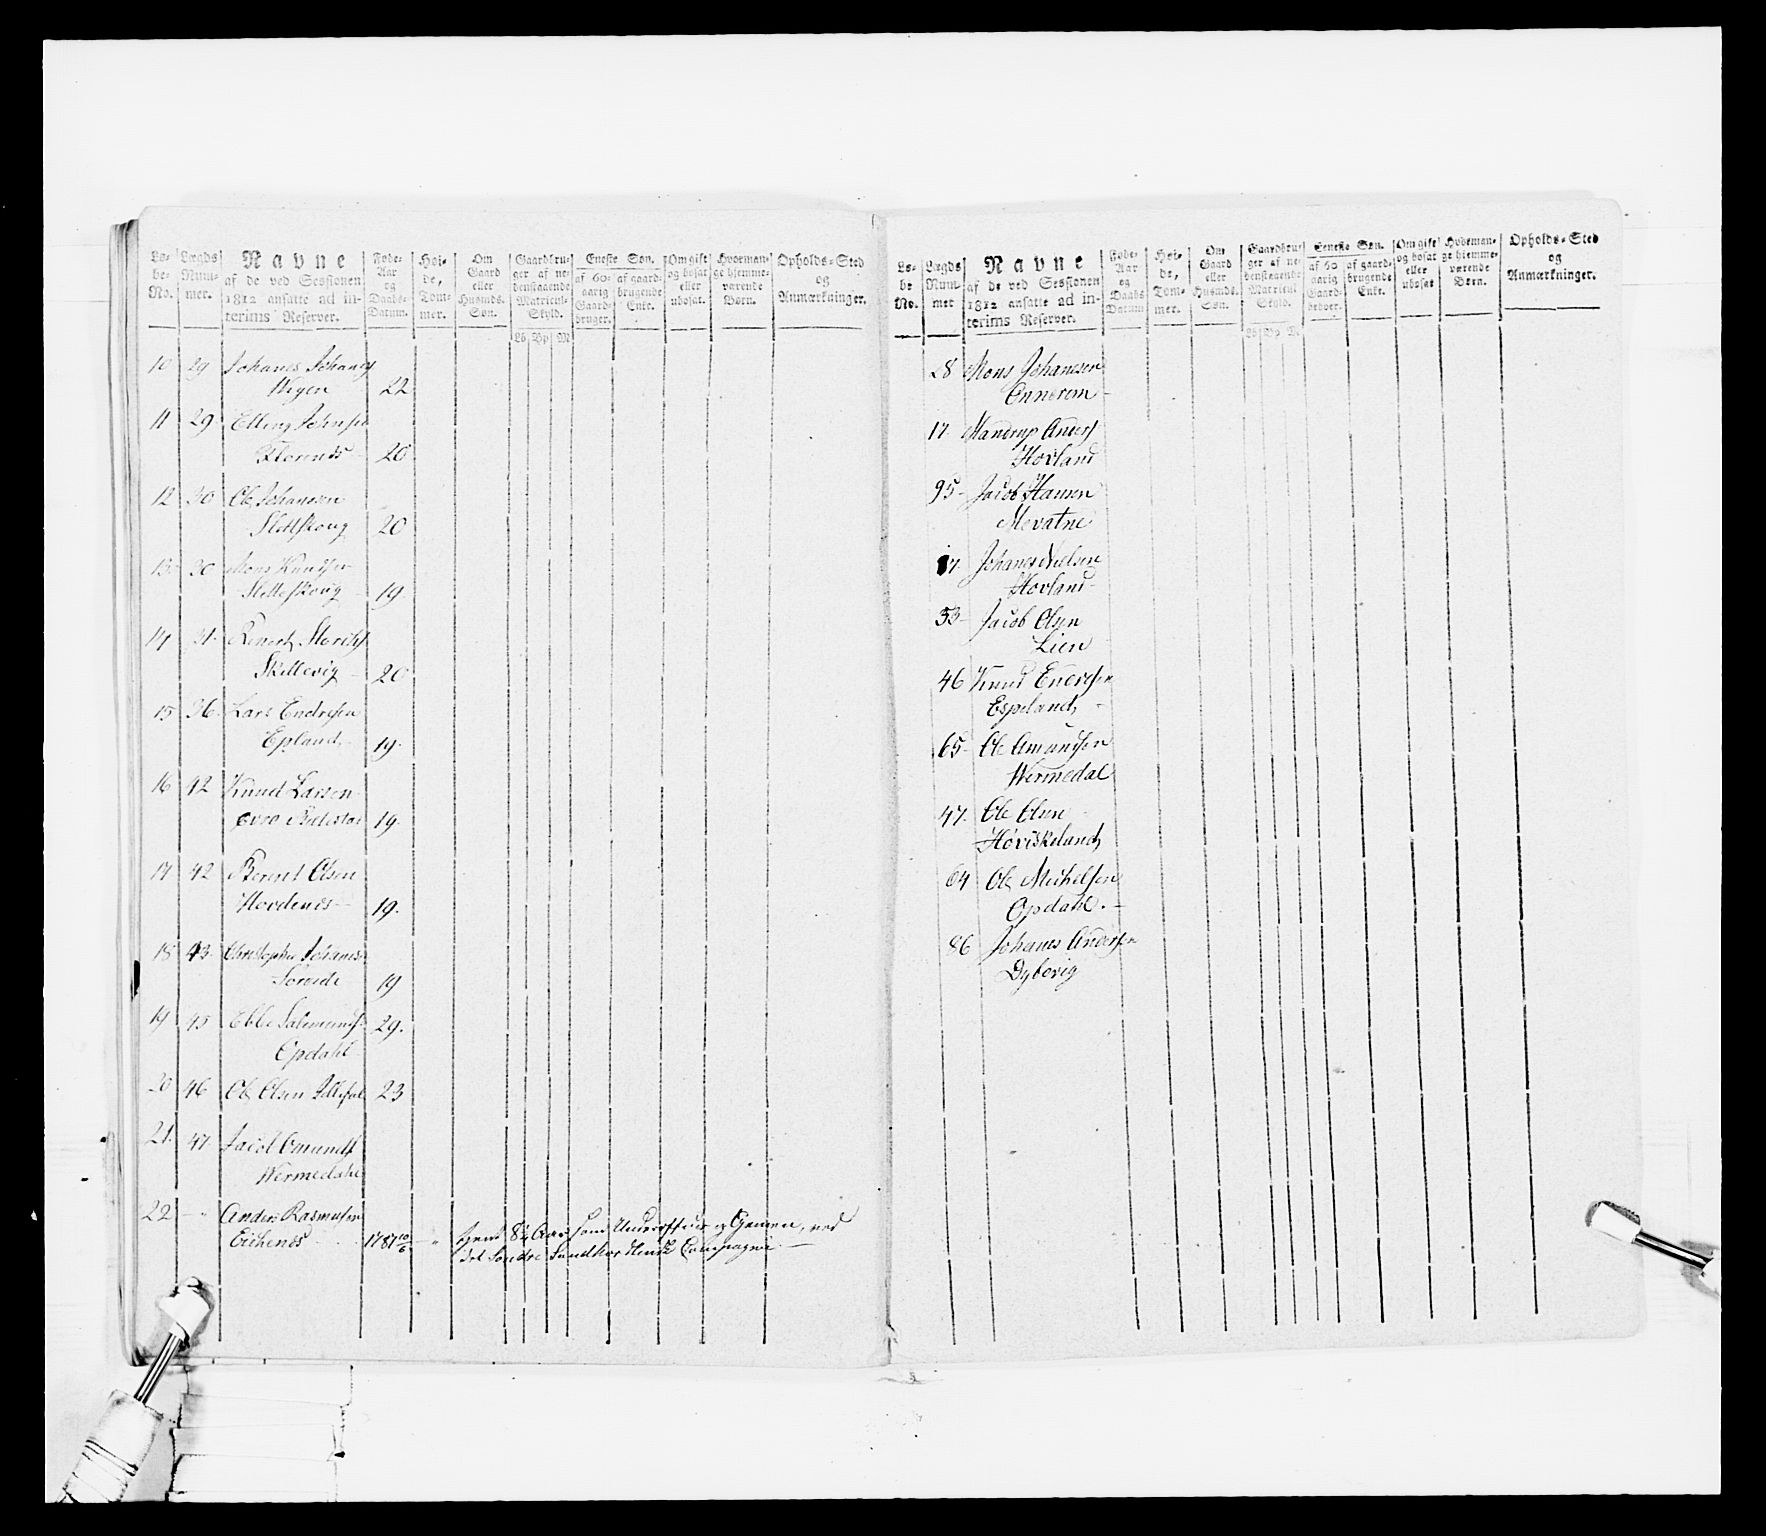 Lø-
be-
No.
Lægds
Num-
mer.
Navne
af de ved Sessionen
1812 ansatte ad in-
terims Reserver.
Føde-
Aar
og
Daabs-
Datum.
Høi-
de,
Tom-
mer.
Om
Gaard
eller
Husmds.
Søn.
Gaardbru-
ger af ne-
denstaaende
Matricul-
Skyld.
Lb Bp M
Eneste Søn.
af 60-
aarig
Gaard-
bruger.
af gaard-
brugende
Enke.
Om gift
og bosat
eller
ubosat.
Hvorman-
ge hjemme-
værende
Børn.
Opholds-Sted
og
Anmærkninger.
10 29 Johanes Johanes
Wigen 22
11 29 Elling Johnsen
20
12 30 Ole Johansen
Slettskoug 20
13 30 Mons Knudsen
Sletteskoug 19
14 31
Skillevig 20
15 36 Lars Endresen
Epland 19.
16 42 Knud Larsen
19.
17 42 Berent Olsen
Hovdenes 19.
18 43 Christopher Johanes
19
19 45 Ebbe Salemonds 29.
Opdahl
20 46 Ole Olsen 23
21. 47 Jacob Omunds
Wermedahl
22 - " Anders Rasmusen
Eichenes 1787 " tjent 8¼ Aar som og Gemeen, ved
det Søndre Compagnie
Lø-
be
No.
Lægds
Num-
mer
Navne
af de ved Sessionen
1812 ansatte ad in-
terims Reserver.
Føde-
Aar
og
Daabs
Datum
Høi-
de,
Tom-
mer.
Om
Gaard
eller
Husmds.
Søn.
Gaardbru-
ger af ne-
denstaaende
Matricul
Skyld.
Lb Bp M
Eneste Søn.
af 60
aarig
Gaard-
bruger.
af gaard-
brugende
Enke.
Om gift
og bosat
eller
ubosat
Hvorman-
ge hjemme-
værende
Børn.
Opholds-Sted
og
Anmærkninger.
28 Mons Johanesen
Onnerem
17. Mandrup Anders
Hovland
95- Jacob Hansen
Mevatne
17. Johanes Nielsen
Hovland
53- Jacob Olsen
Lien
46 Knud Endresen
Espeland
65- Ole Amundsen
Wermedal
47. Ole Olsen
Høviskeland
64 Ole Michelsen
Opdahl.
86 Johanes Andersen
Dybevig